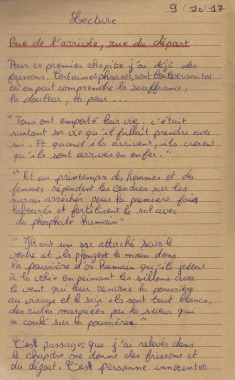 9/10/17
Lecture
Rue de l'arrivée, rue du départ
Pour ce premier chapitre j'ai déjà des
frissons. Certaines phrases sont bouleversantes
où on peut comprendre la souffrance,
la douleur, la peur...
"Tous ont emporté leur vies, c'était
surtout sa vie qu'il fallait prendre avec
soi. Et quand ils arrivent, ils croient
qu'ils sont arrivés en enfer.."
"Et au printemps des hommes et des
femmes répendent les cendres sur les
marais asséchés pour la première fois
labourés et fertilisent le sol avec
du phosphate humain"
"Ils ont un sac attaché sous le
ventre et ils plongent la main dans
la poussière d'os humain qu'ils jettent
à la volée en peinant les sillons avec
le vent qui leur renvoie la poussière
au visage et le soir ils sont tout blancs,
des rides marquées par la sueur qui
a coulé sur la poussières."
C'est passages que j'ai relevés dans
le chapitre me donne des frissons et
du dégout. C'est personne innocentes